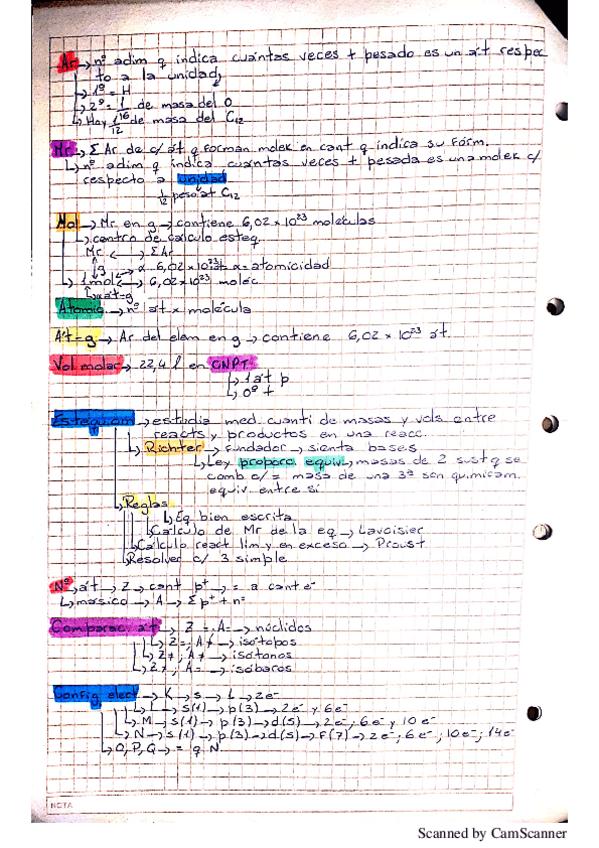 Ar → nº adim q indica cuántas veces + pesado es un át respec
to a la unidad
↳ 1º = H
↳ 2º = 1/16 de masa del O
↳ Hoy 1/12 de masa del C12
Mr → Σ Ar de c/ át q forman molék en cant q indica su fórm.
↳ nº adim q indica cuántas veces + pesada es una molek c/
respecto a unidad
1/12 peso át C12
Mol → Mr en g → contiene 6,02 x 10^23 moléculas
↳ centro de cálculo esteq.
Mr ↔ Σ Ar
g ↔ α . 6,02 x 10^23 át α = atomicidad
↳ 1 mol ↔ 6,02 x 10^23 moléc
↳ α át-g
Atomic → nº át x molécula
Át-g → Ar del elem en g → contiene 6,02 x 10^23 át.
Vol molar → 22,4 l en CNPT
↳ 1 át p
↳ 0º t
Estequiom → estudia med. cuanti de masas y vols entre
reacts y productos en una reacc.
↳ Richter → fundador → sienta bases
↳ Ley proporc equiv → masas de 2 sust q se
comb c/ = masa de una 3ª son químicam.
equiv. entre sí
↳ Reglas
↳ Eq bien escrita
↳ Cálculo de Mr de la eq → Lavoisier
↳ Cálculo react lim y en exceso → Proust
↳ Resolver c/ 3 simple
Nº át → Z → cant p+ → = a cant e-
↳ másico → A → Σ p+ + nº
Comparac át → Z = A = → núclidos
↳ Z = ; A ≠ → isótopos
↳ Z ≠ ; A ≠ → isótonos
↳ Z ≠ ; A = → isóbaros
Config elect → K → s → L → 2e-
↳ L → s(1) → p(3) → 2e- y 6e-
↳ M → s(1) → p(3) → d(5) → 2e-; 6e- y 10e-
↳ N → s(1) → p(3) → d(5) → f(7) → 2e-; 6e-; 10e-; 14e-
↳ O, P, Q → = q N
NOTA
Scanned by CamScanner